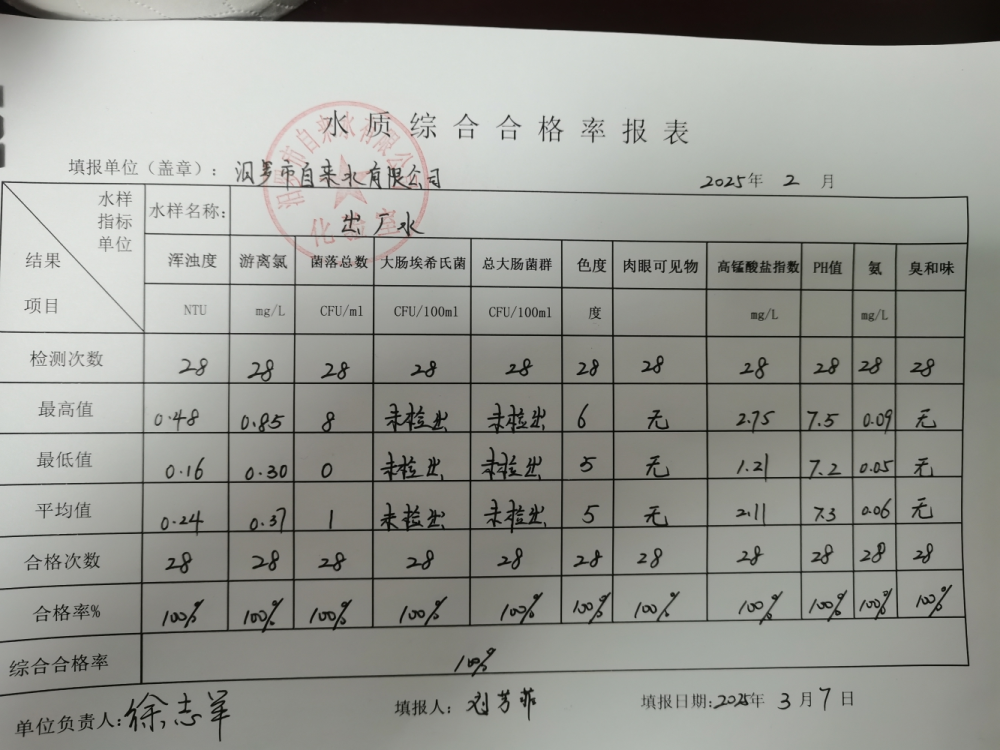 水质综合合格率报表
填报单位（盖章）：汨罗市自来水有限公司 2025年 2 月
水样 指标 单位 结果 项目
水样名称： 出厂水
浑浊度 游离氯 菌落总数 大肠埃希氏菌 总大肠菌群 色度 肉眼可见物 高锰酸盐指数 PH值 氨 臭和味
NTU mg/L CFU/ml CFU/100ml CFU/100ml 度 mg/L mg/L
检测次数 28 28 28 28 28 28 28 28 28 28 28
最高值 0.48 0.85 8 未检出 未检出 6 无 2.75 7.5 0.09 无
最低值 0.16 0.30 0 未检出 未检出 5 无 1.21 7.2 0.05 无
平均值 0.24 0.37 1 未检出 未检出 5 无 2.11 7.3 0.06 无
合格次数 28 28 28 28 28 28 28 28 28 28 28
合格率% 100% 100% 100% 100% 100% 100% 100% 100% 100% 100% 100%
综合合格率 100%
单位负责人：徐志军 填报人：刘芳菲 填报日期:2025年 3 月 7 日
汨罗市自来水有限公司
化验室